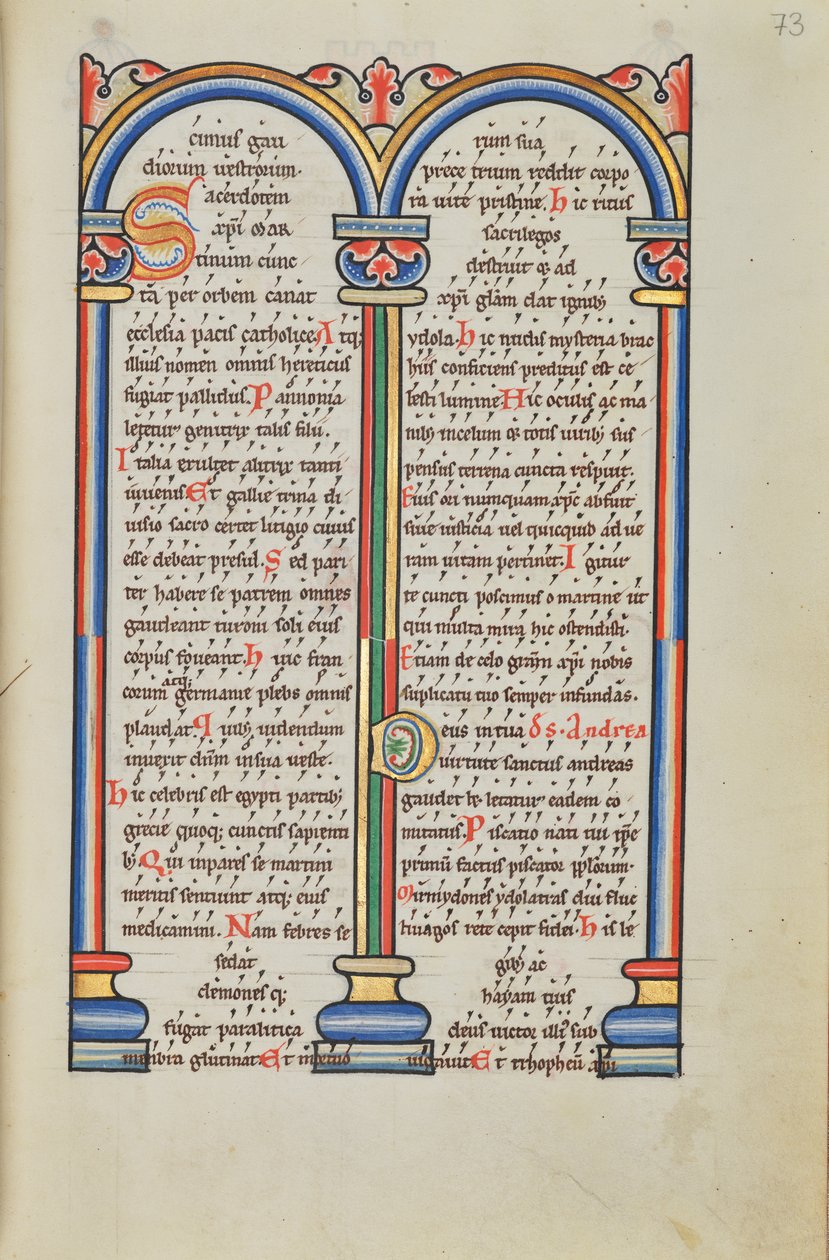 73
cimus gau
diorum uestrorum.
Sacerdotem
xp̅i mar
tinum cunc
ta per orbem canat
ecclesia pacis catholice. Atq;
illius nomen omnis hereticus
fugiat pallidus. Pannonia
letetur genitrix talis filii.
Italia exultet alitrix tanti
iuuenis. Et gallie trina di
uisio sacro certet litigio cuius
esse debeat presul. Sed pari
ter habere se patrem omnes
gaudeant turoni soli eius
corpus foueant. Huic fran
corum atq; germanie plebs omnis
plaudat. Quib; uidendum
inuexit dn̅m in sua ueste.
Hic celebris est egypti partib;
grecie quoq; cunctis sapienti
b; Qui inpares se martini
meritis sentiunt atq; eius
medicamini. Nam febres se
dat
demones q;
fugat paralitica
membra glutinat. Et
rum sua
prece trium reddit corpo
ra uite pristine. Hic ritus
sacrilegos
destruit & ad
xp̅i gl̅am dat ignib;
ydola. Hic nudis mysteria brac
hiis conficiens preditus est ce
lesti lumine Hic oculis ac ma
nib; in celum & totis uirib; sus
pensus terrena cuncta respuit.
Eius ori numquam xp̅c abfuit
siue iusticia uel quicquid ad ue
ram uitam pertinet. Igitur
te cuncti poscimus o martine ut
qui multa mira hic ostendisti.
Etiam de celo gr̅am xp̅i nobis
suplicatu tuo semper infundas.
Deus in tua DS. Andrea
uirtute sanctus andreas
gaudet & letatur eadem co
mitatus. Piscatio nati tui ip̅e
primu̅ factus piscator pp̅lorum.
Mirmydones ydolatras diu fluc
tiuagos rete cepit fidei. His le
gib; ac
hayam tuis
deus uictor illi̅ sub
iugauit Et trhopheu̅ xp̅i